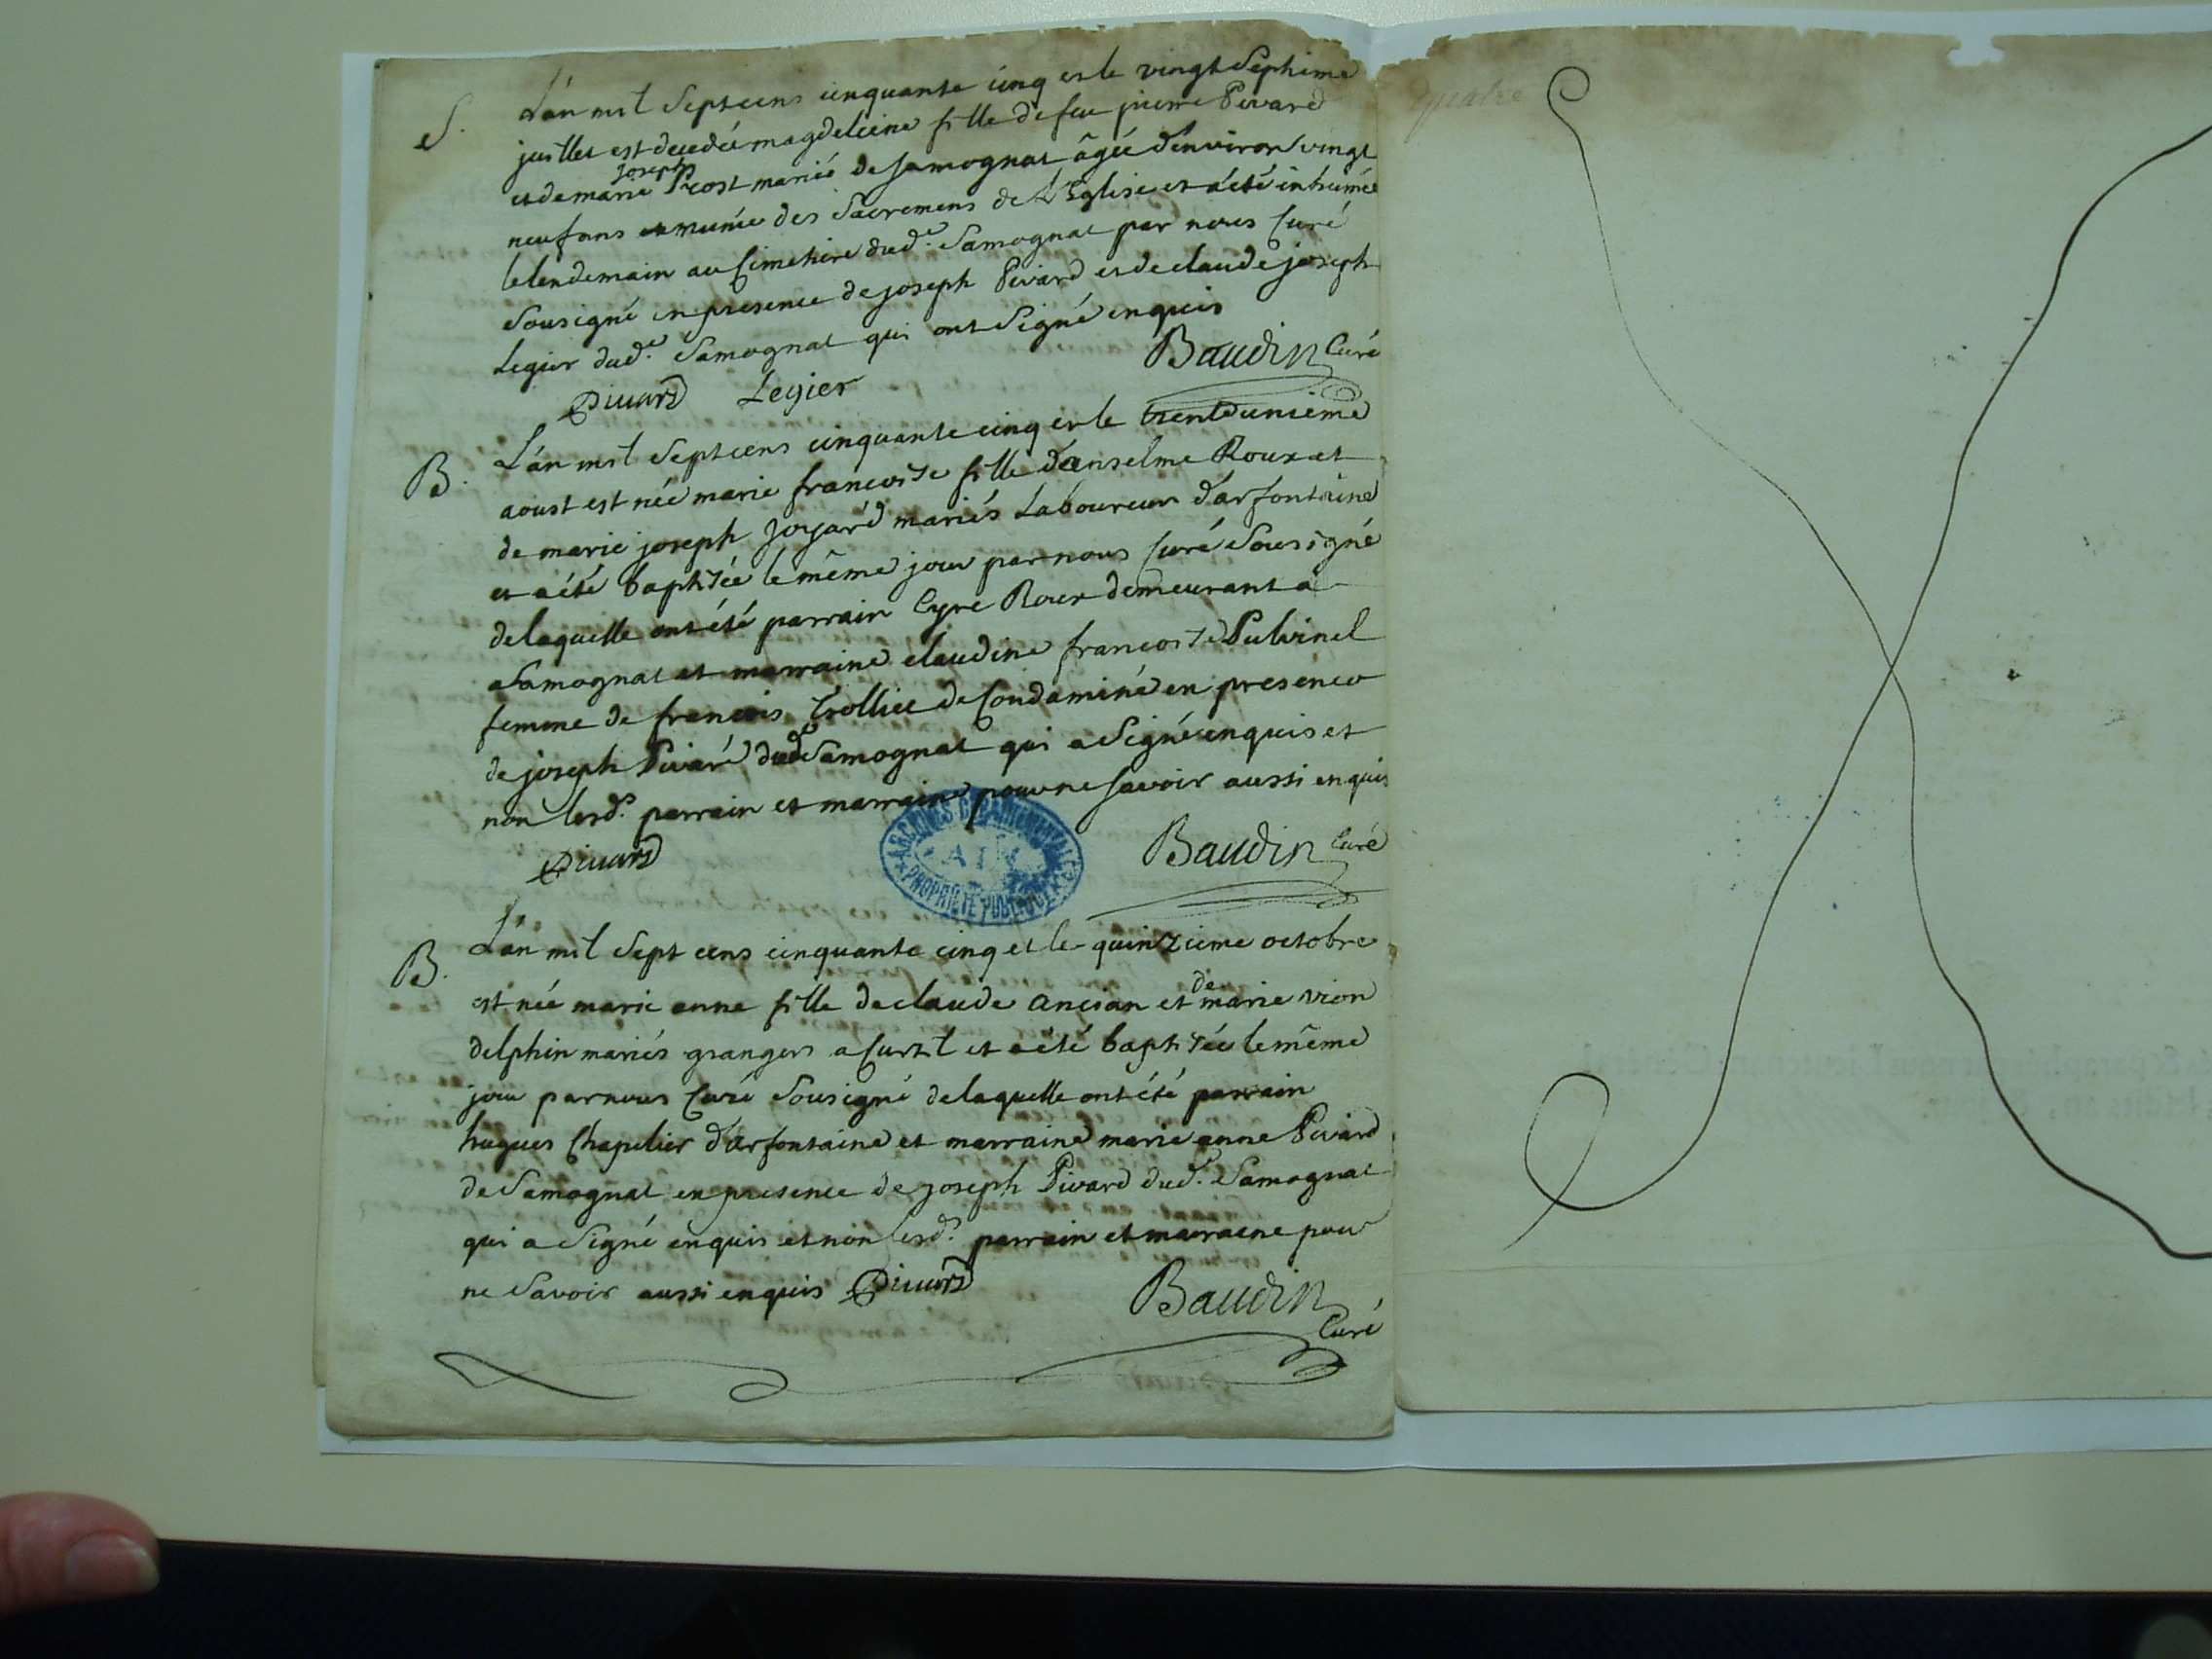 S.
L'an mil Septcens cinquante cinq et le vingt Septieme
juillet est decedée magdeleine fille de feu pierre Pivard
et de marie joseph Prost mariés de Samognat âgée d'environ vingt
neuf ans et munie des Sacremens de L'Eglise et a été inhumée
le lendemain au Cimetiere dud.t Samognat par nous Curé
Sousigné en presence de joseph Pivard et de claude joseph
Legier dud.t Samognat qui ont Signé enquis
Pivard Legier Baudin Curé
B.
L'an mil Septcens cinquante cinq et le trente unieme
aoust est née marie francoise fille d'anselme Roux et
de marie joseph Joyard mariés Laboureur d'arfontaine
et a été baptisée le même jour par nous Curé Sousigné
de laquelle ont été parrain Cyre Roux demeurant a
Samognat et marraine claudine francoise Pulvinel
femme de francois Trolliet de Condamine en presence
de joseph Pivard dud.t Samognat qui a Signé enquis et
non lesd.s parrain et marraine pour ne Savoir aussi enquis
Pivard Baudin Curé
ARCHIVES DÉPARTEMENTALES
AIN
PROPRIÉTÉ PUBLIQUE
B.
L'an mil Sept cens cinquante cinq et le quinzieme octobre
est née marie anne fille de claude ancian et de marie vion
delphin mariés grangers a Curtil et a été baptisée le même
jour par nous Curé Sousigné de laquelle ont été parrain
hugues Chapelier d'arfontaine et marraine marie anne Pivard
de Samognat en presence de joseph Pivard dud.t Samognat
qui a Signé enquis et non lesd.s parrain et marraine pour
ne Savoir aussi enquis Pivard Baudin
Curé